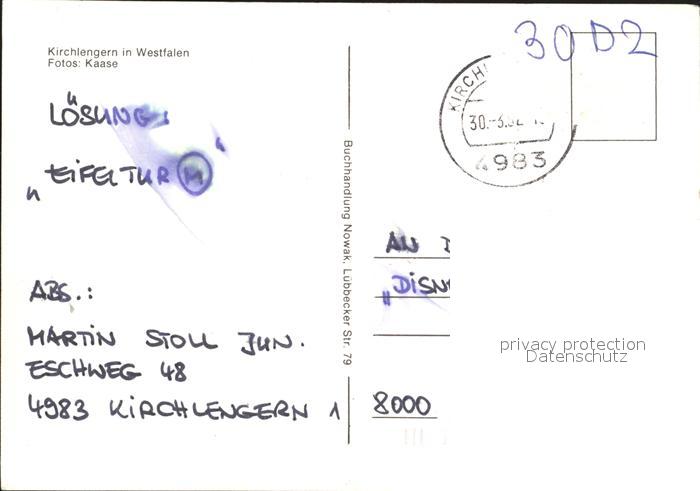 Kirchlengern in Westfalen
Fotos: Kaase
LÖSUNG:
"EIFELTUR M"
ABS.:
MARTIN STOLL JUN.
ESCHWEG 48
4983 KIRCHLENGERN 1
Buchhandlung Nowak, Lübbecker Str. 79
30 D2
KIRCHL
30.-3.82
4983
AN D
"DISN
8000
privacy protection
Datenschutz